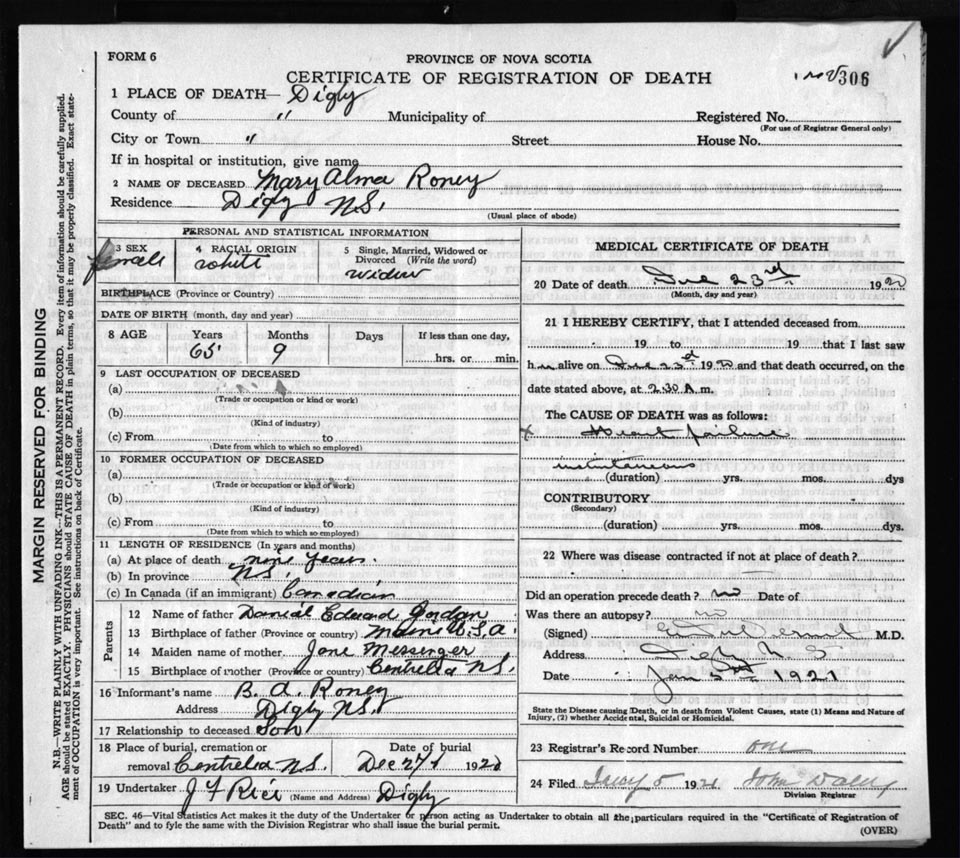 FORM 6
PROVINCE OF NOVA SCOTIA
CERTIFICATE OF REGISTRATION OF DEATH
306
1 PLACE OF DEATH— Digby
County of " Municipality of Registered No.
(For use of Registrar General only)
City or Town " Street House No.
If in hospital or institution, give name
2 NAME OF DECEASED Mary Alma Roney
Residence Digby N.S.
(Usual place of abode)
PERSONAL AND STATISTICAL INFORMATION
3 SEX
female
4 RACIAL ORIGIN
white
5 Single, Married, Widowed or Divorced (Write the word)
widow
BIRTHPLACE (Province or Country)
DATE OF BIRTH (month, day and year)
8 AGE Years Months Days If less than one day,
65 9 hrs. or min.
9 LAST OCCUPATION OF DECEASED
(a)
(Trade or occupation or kind or work)
(b)
(Kind of industry)
(c) From to
(Date from which to which so employed)
10 FORMER OCCUPATION OF DECEASED
(a)
(Trade or occupation or kind of work)
(b)
(Kind of industry)
(c) From to
(Date from which to which so employed)
11 LENGTH OF RESIDENCE (In years and months)
(a) At place of death nine years
(b) In province N.S.
(c) In Canada (if an immigrant) Canadian
Parents
12 Name of father Danial Edward Jordan
13 Birthplace of father (Province or country) Maine U.S.A.
14 Maiden name of mother Jane Messenger
15 Birthplace of mother (Province or country) Centrelea N.S.
16 Informant's name B. A. Roney
Address Digby N.S.
17 Relationship to deceased Son
18 Place of burial, cremation or removal Centrelea N.S.
Date of burial
Dec 27 1920
19 Undertaker J F Rice (Name and Address) Digby
MEDICAL CERTIFICATE OF DEATH
20 Date of death Dec 23rd 1920
(Month, day and year)
21 I HEREBY CERTIFY, that I attended deceased from
19 to 19 that I last saw
h alive on Dec 23rd 1920 and that death occurred, on the
date stated above, at 2.30 A.m.
The CAUSE OF DEATH was as follows:
x Heart failure
instantaneous
(duration) yrs. mos. dys
CONTRIBUTORY
(Secondary)
(duration) yrs. mos. dys.
22 Where was disease contracted if not at place of death?
Did an operation precede death? no Date of
Was there an autopsy? no
(Signed) M.D.
Address Digby N S
Date Jan 5th 1921
State the Disease causing Death, or in death from Violent Causes, state (1) Means and Nature of Injury, (2) whether Accidental, Suicidal or Homicidal.
23 Registrar's Record Number one
24 Filed 5 1921 John
Division Registrar
SEC. 46—Vital Statistics Act makes it the duty of the Undertaker or person acting as Undertaker to obtain all the particulars required in the "Certificate of Registration of
Death" and to fyle the same with the Division Registrar who shall issue the burial permit.
(OVER)
MARGIN RESERVED FOR BINDING
N.B.—WRITE PLAINLY WITH UNFADING INK—THIS IS A PERMANENT RECORD. Every item of information should be carefully supplied.
AGE should be stated EXACTLY. PHYSICIANS should STATE CAUSE OF DEATH in plain terms, so that it may be properly classified. Exact state-
ment of OCCUPATION is very important. See instructions on back of Certificate.